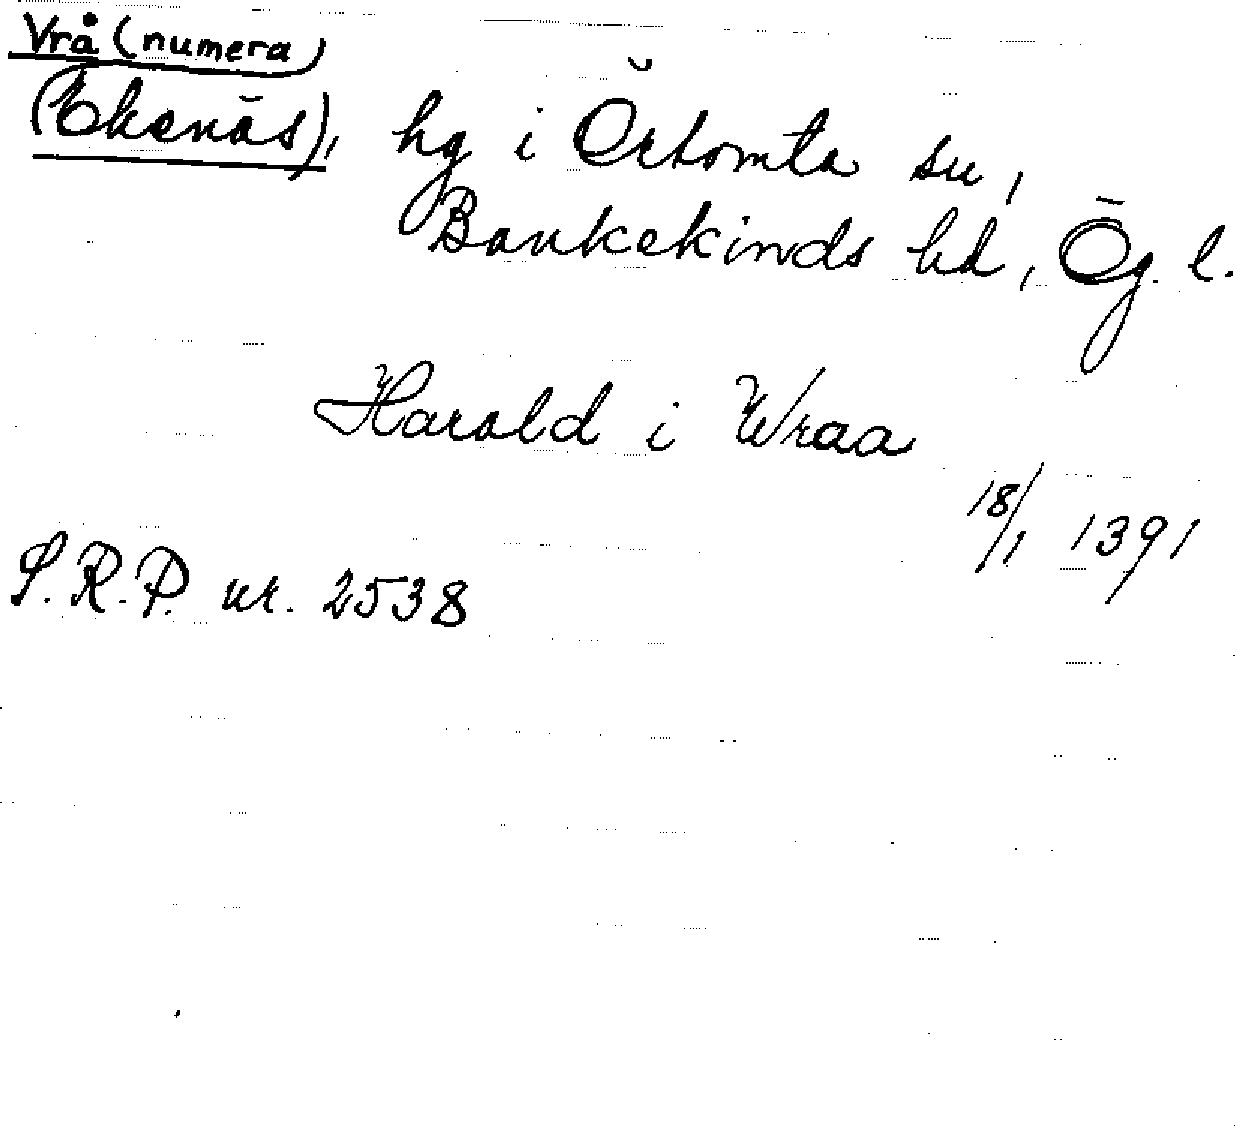 Vrå (numera)
(Ekenäs), hg i Örtomta sn,
Bankekinds hd, Ög. l.
Harald i Wraa
18/1 1391
S.R.P. nr. 2538